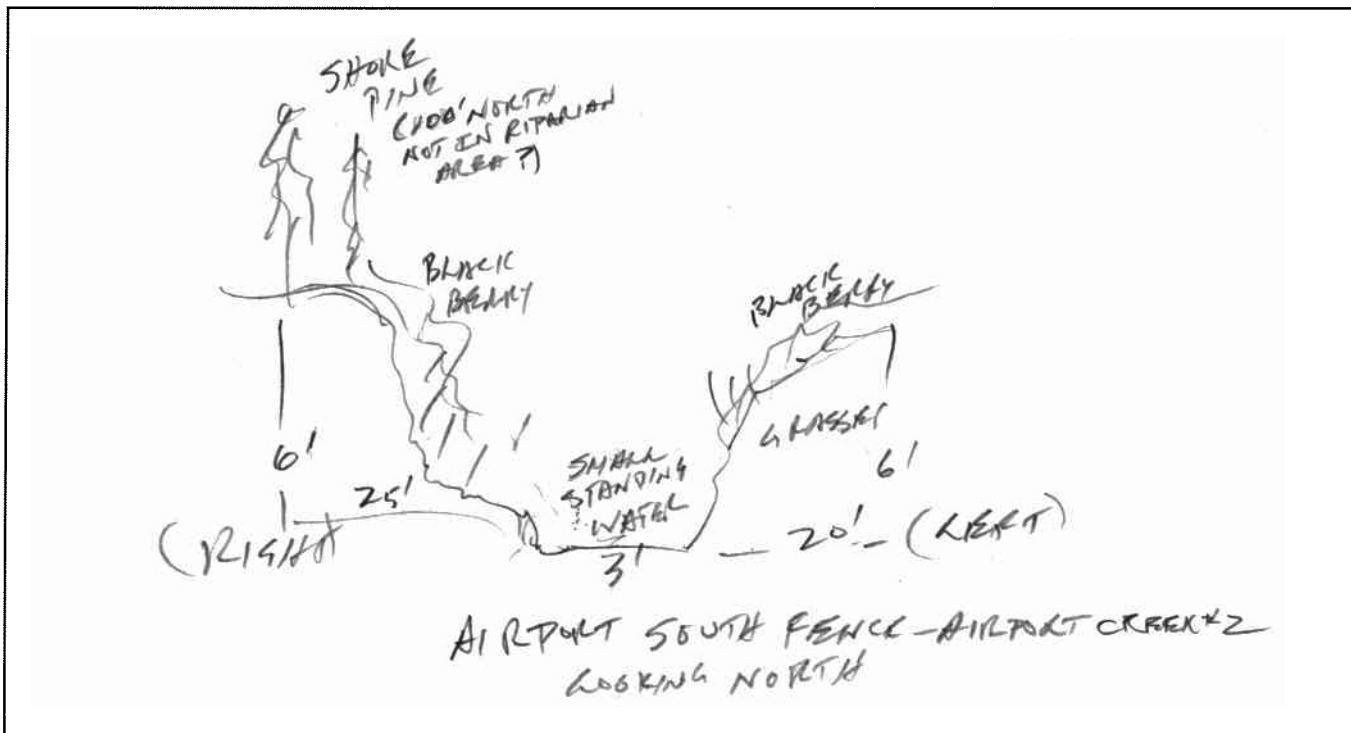 SHORE
PINE
(100' NORTH
NOT IN RIPARIAN
AREA ?)
BLACK
BERRY
BLACK
BERRY
GRASSES
6'
6'
25'
SMALL
STANDING
WATER
3'
(RIGHT)
20' (LEFT)
AIRPORT SOUTH FENCE - AIRPORT CREEK #2
LOOKING NORTH